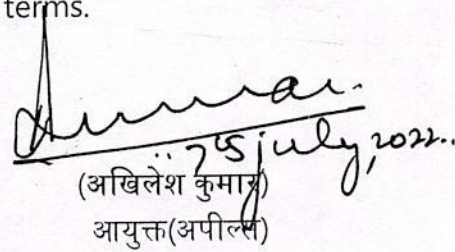 terms.
july, 2022..
(अखिलेश कुमार)
आयुक्त(अपील्स)